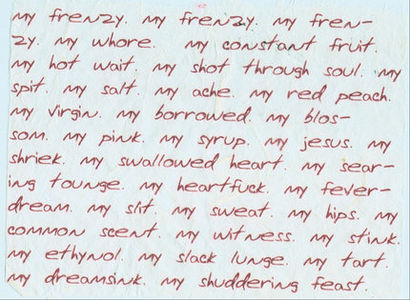 my frenzy. my frenzy. my fren-
zy. my whore. my constant fruit.
my hot wait. my shot through soul. my
spit. my salt. my ache. my red peach.
my virgin. my borrowed. my blos-
som. my pink. my syrup. my jesus. my
shriek. my swallowed heart. my sear-
ing tounge. my heartfuck. my fever-
dream. my slit. my sweat. my hips. my
common scent. my witness. my stink.
my ethynol. my slack lunge. my tart.
my dreamsink. my shuddering feast.